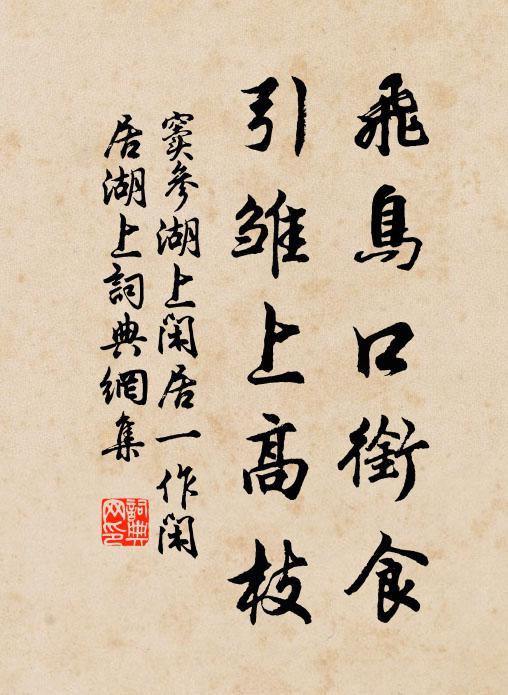 飛鳥口銜食
引雛上高枝
竇參湖上閑居一作閑
居湖上詞典網集
詞典网印